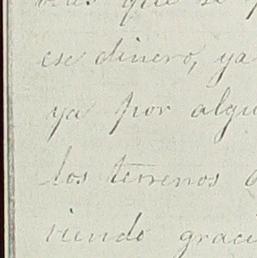 que se
ese dinero, ya
ya por algu
los terrenos
riendo graci